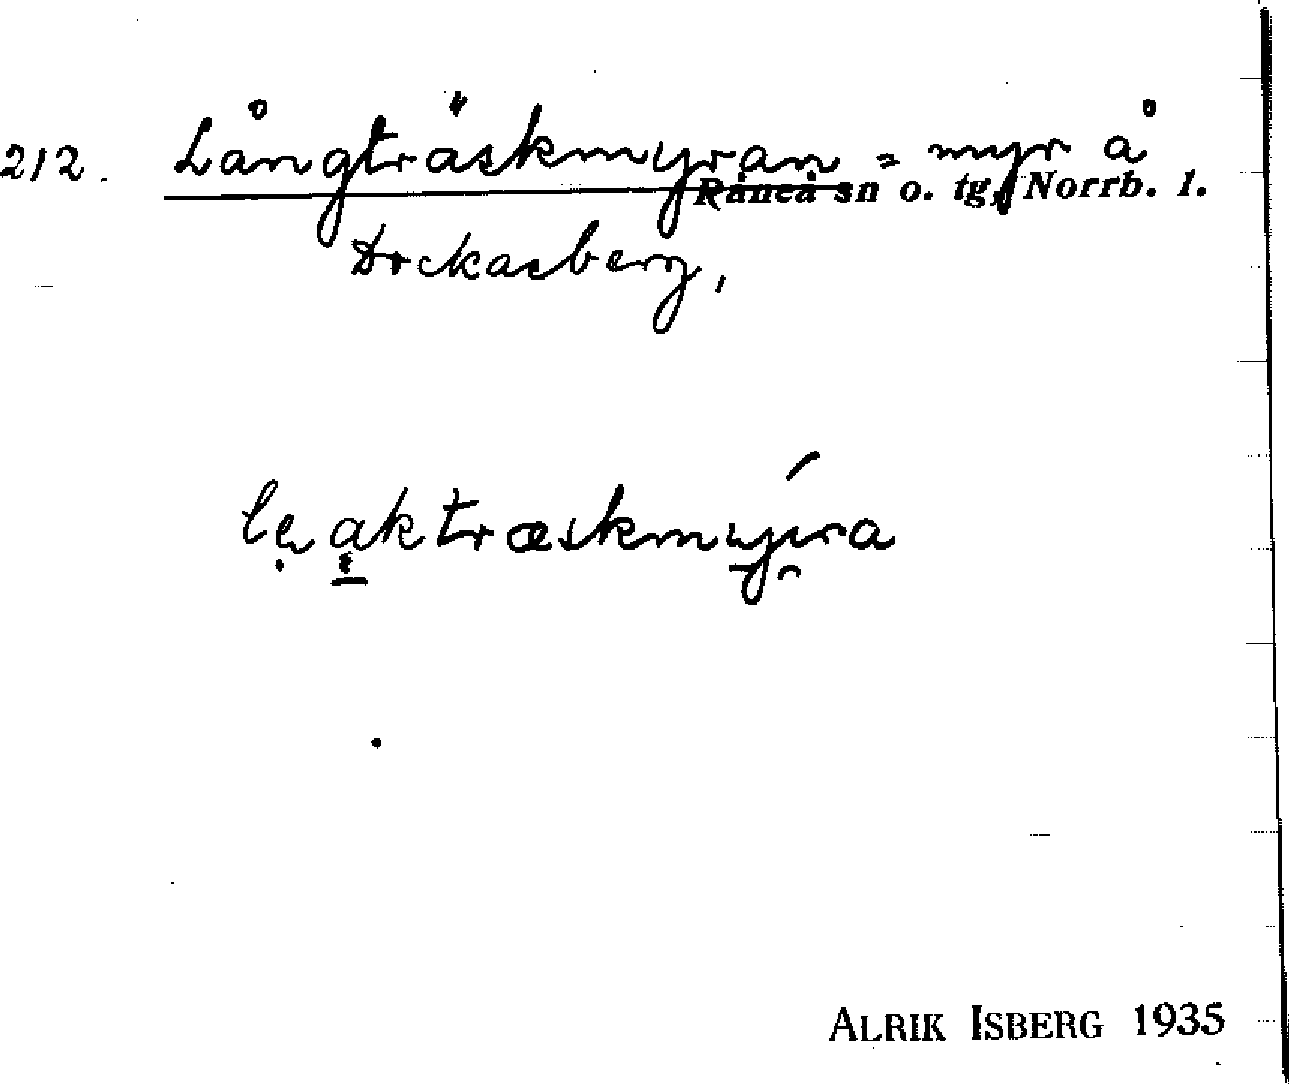 212. Långträskmyran = myr å
Råneå sn o. tg, Norrb. l.
Dockasberg,
ALRIK ISBERG 1935